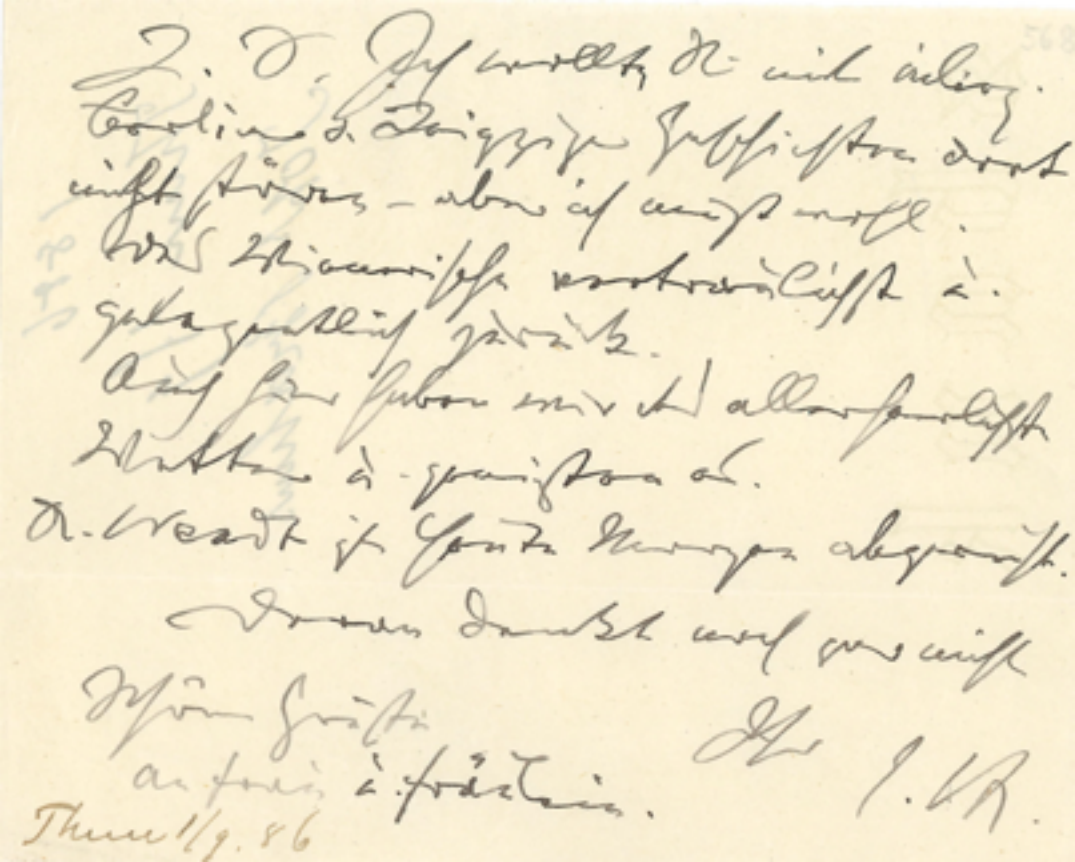 L. Ich wollte Sie mit inlieg.
Berliner u. Leipziger Geschichten dort
nicht stören – aber ich muß wohl.
Das Wienerische vertraulichst u.
gelegentlich zurück.
Auch hier haben wir das allerherrlichste
Wetter u. genießen es.
Dr. Wendt ist heute Morgen abgereist.
Daran denkt noch gar nicht
Ihr J. Br.
Schöne Grüße
an Frau u. Fräulein.
Thun 1/9. 86